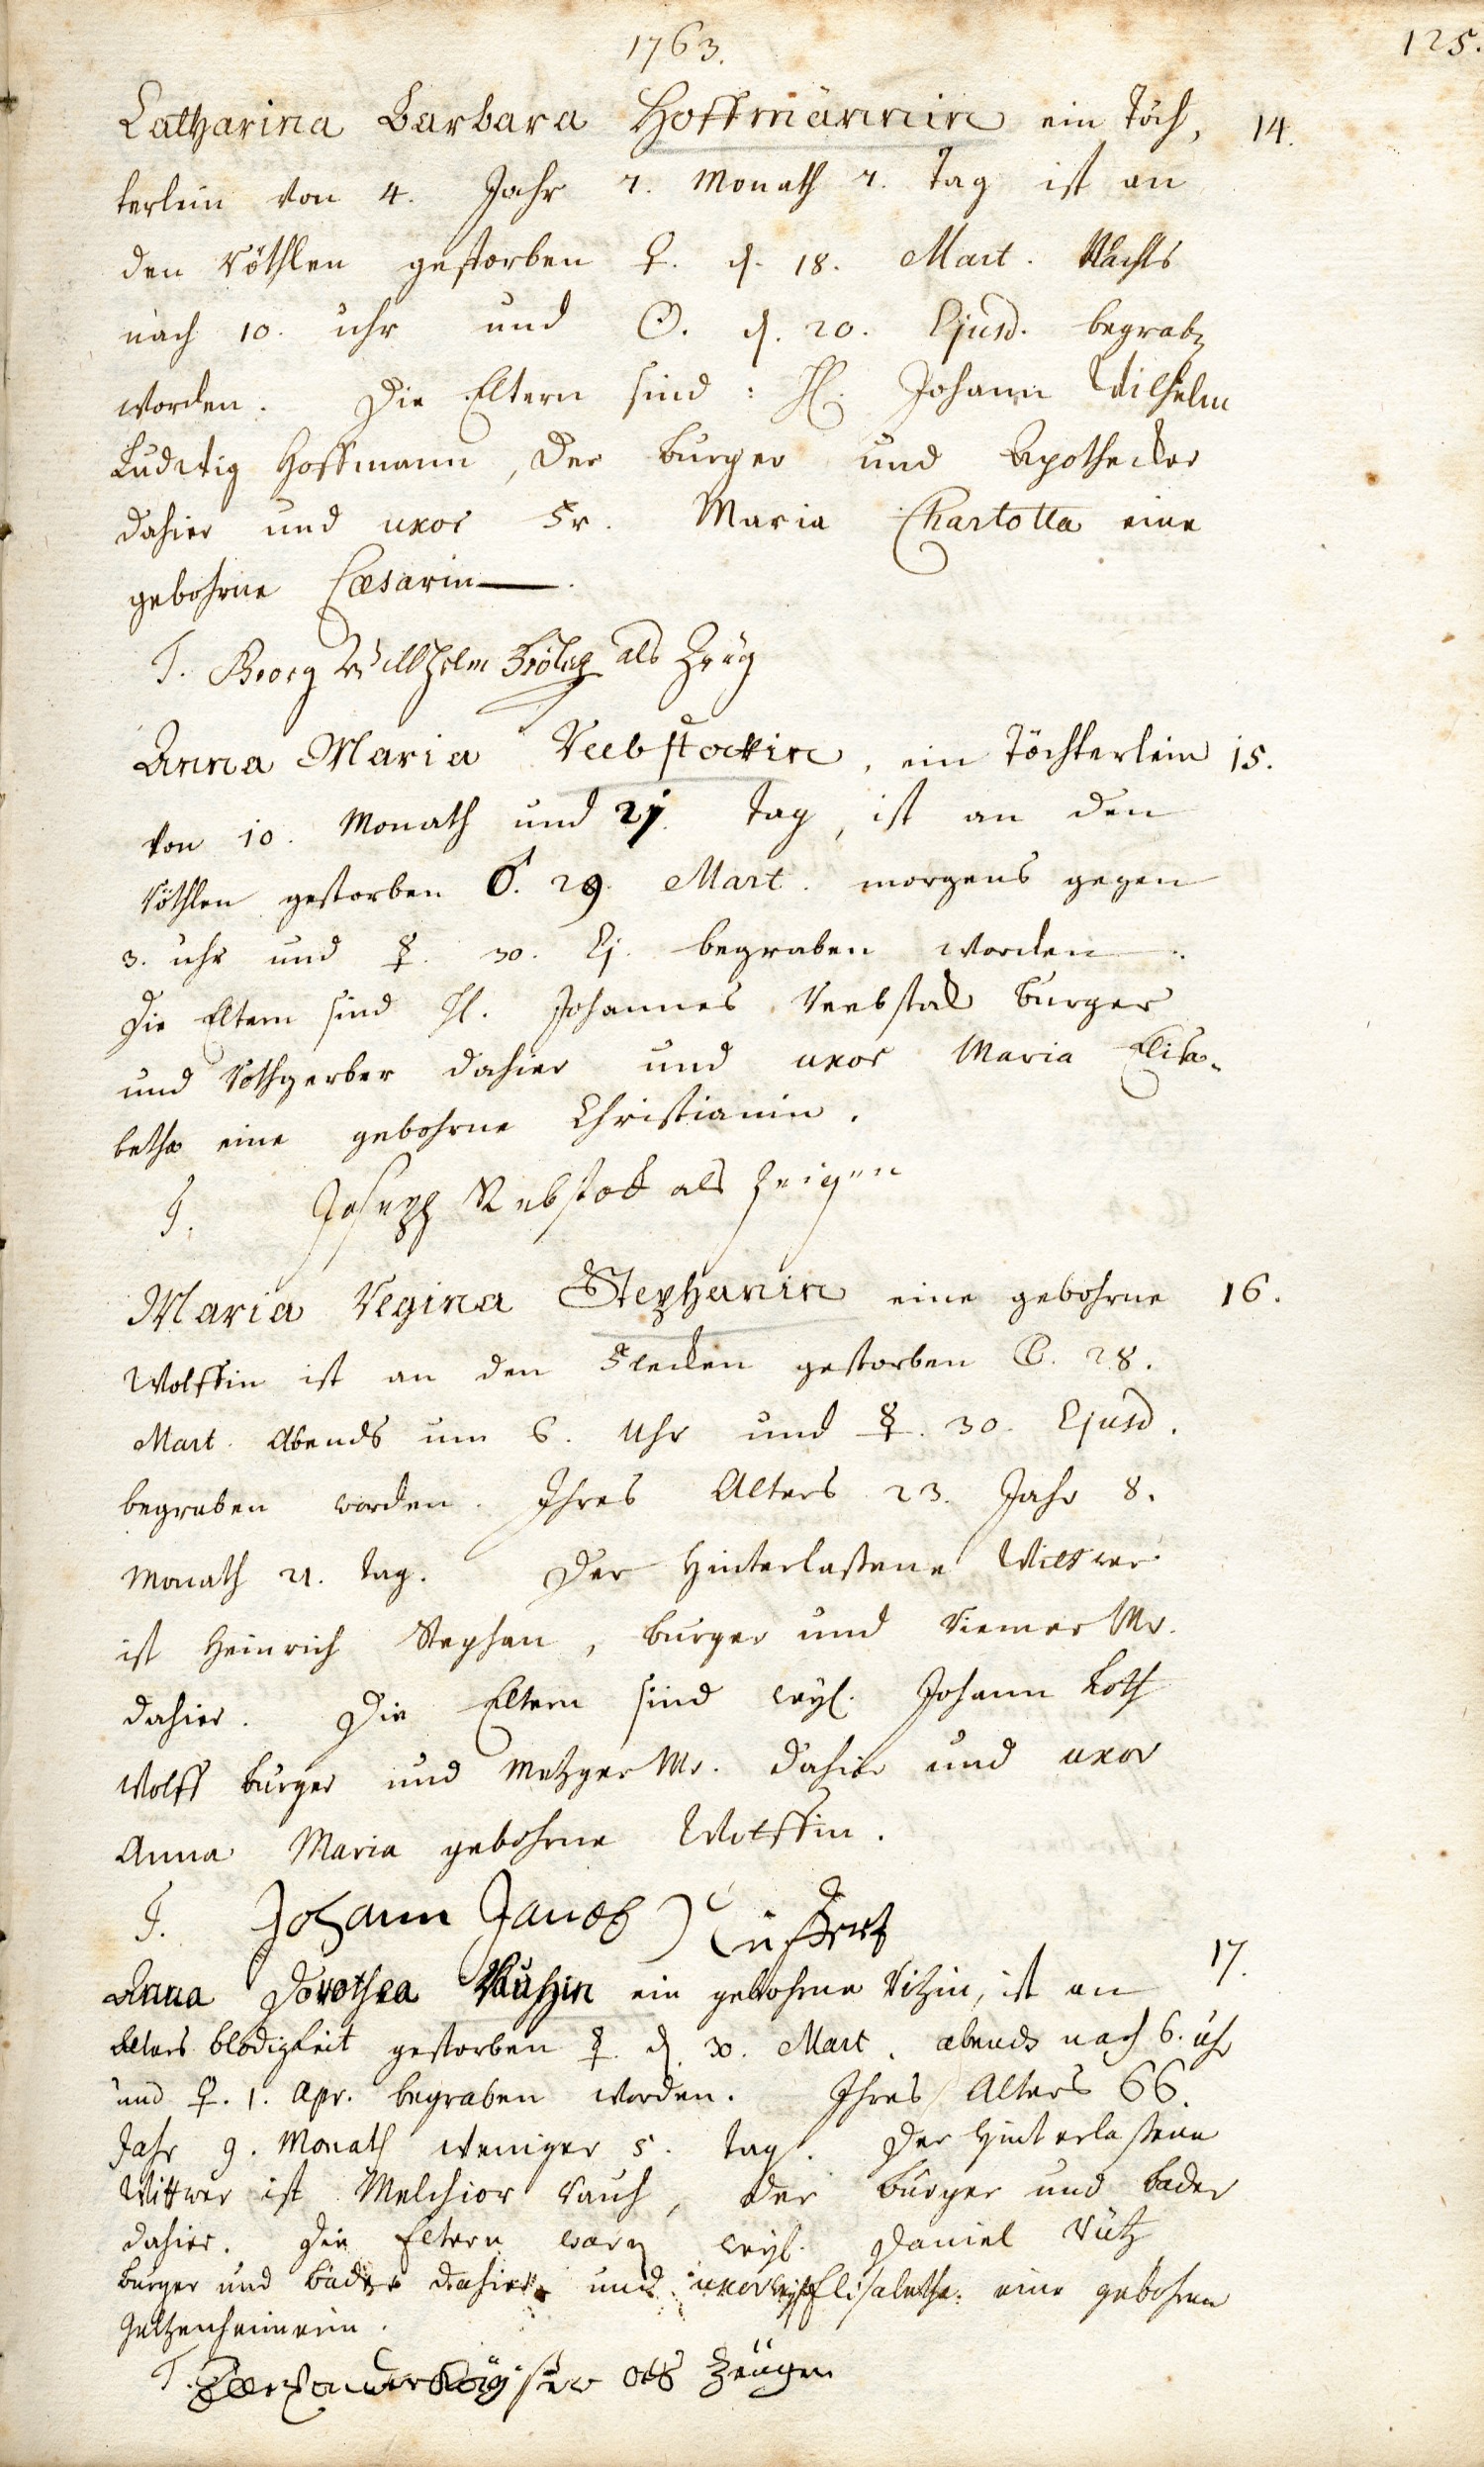 1763.
125.
Catharina Barbara Hoffmännin ein Töch, 14.
terlein von 4. Jahr 7. Monath 7. Tag ist an
den Röthlen gestorben ♀. d. 18. Mart. Nachts
nach 10. uhr und ☉. d. 20. Ejusd. begrabn
worden. Die Eltern sind: H. Johann Wilhelm
Ludwig Hoffmann, der burger und Apothecker
dahier und uxor Fr. Maria Charlotta eine
gebohrne Cæsarin.
T. Georg Willhelm als Zeüg
Anna Maria Reebstockin, ein Töchterlein 15.
von 10. Monath und 21. Tag, ist an den
Röthlen gestorben ♂. 29. Mart. morgens gegen
3. uhr und ☿. 30. Ej. begraben worden.
Die Eltern sind H. Johannes Reebstock burger
und Rothgerber dahier und uxor Maria Elisa-
betha eine gebohrne Christianin.
T. Joseph Rebstock als Zeigen
Maria Regina Stephanin eine gebohrne 16.
Wolffin ist an den Flecken gestorben ☾. 28.
Mart. Abends um 6. Uhr und ☿. 30. Ejusd.
begraben worden. Ihres Alters 23. Jahr 8.
Monath 21. Tag. Der Hinterlassene Wittwer
ist Heinrich Stephan, burger und Riemer Mr.
dahier. Die Eltern sind weyl. Johann Loth
Wolff burger und Metzger Mr. dahier und uxor
Anna Maria gebohrne Wolffin.
T. Johann Jacob
17.
Anna Dorothea Rauhin ein gebohrne Ritzin, ist an
Alters blödigkeit gestorben ☿. d. 30. Mart. abends nach 6. uhr
und ♀. 1. Apr. begraben worden. Ihres Alters 66.
Jahr 9. Monath weniger 5. Tag. Der Hinterlassene
Wittwer ist Melchior Rauh, der burger und bader
dahier. Die Eltern warn weyl. Daniel Rütz
burger und bader dahier und uxor weyl. Elisabetha eine gebohrne
T. als Zeügen